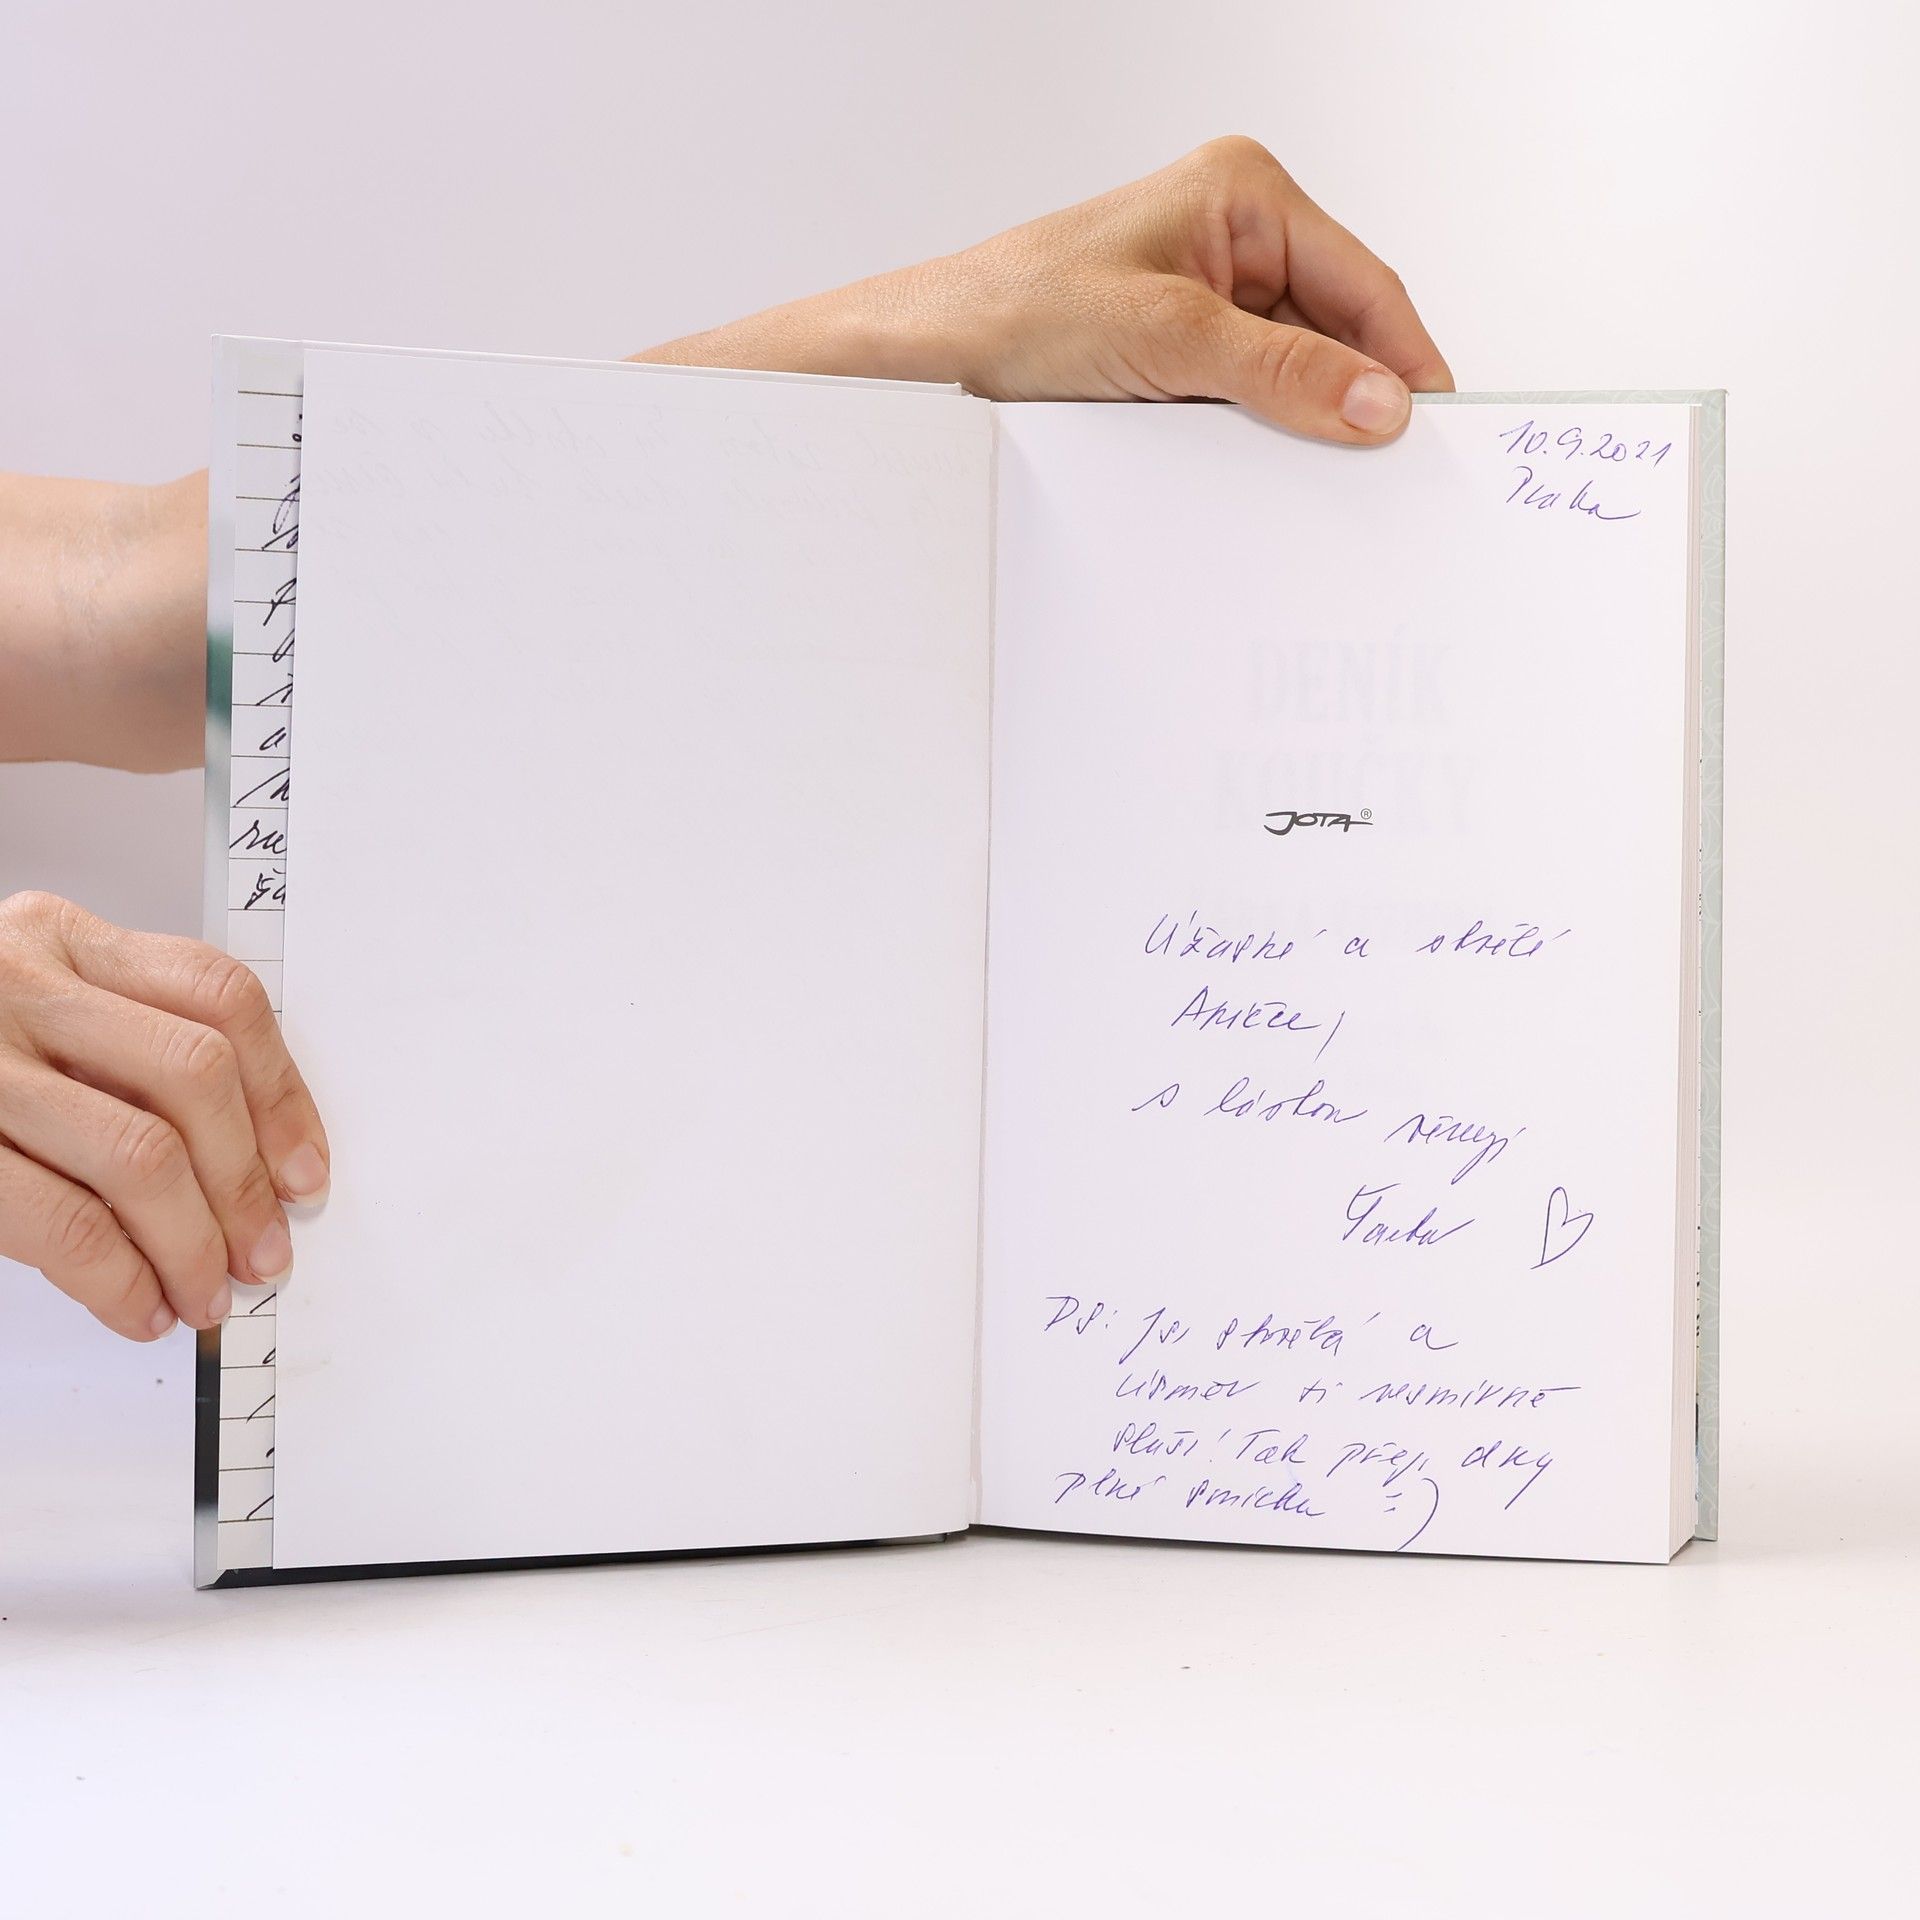 10.9.2021
Praha
DENÍK
KOUČKY
JOTA®
Úžasné a skvělé
Aničce,
s láskou věnuji
PS: Jsi skvělá a
úsměv ti nesmírně
sluší! Tak přeji dny
plné smíchu =)